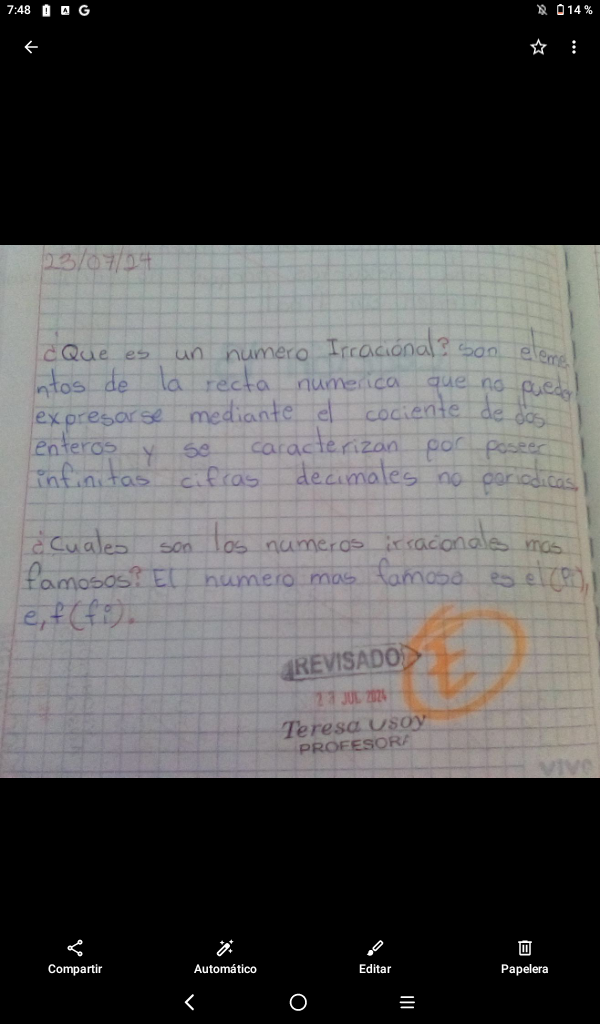 7:48
14 %
23/07/24
¿Que es un numero Irracional? son eleme
ntos de la recta numerica que no pueden
expresarse mediante el cociente de dos
enteros y se caracterizan por poseer
infinitas cifras decimales no periodicas
¿Cuales son los numeros irracionales mas
famosos? El numero mas famoso es el (Pi),
e, f (fi).
REVISADO E
JUL 2024
Teresa Usoy
PROFESORA
vivo
Compartir Automático Editar Papelera